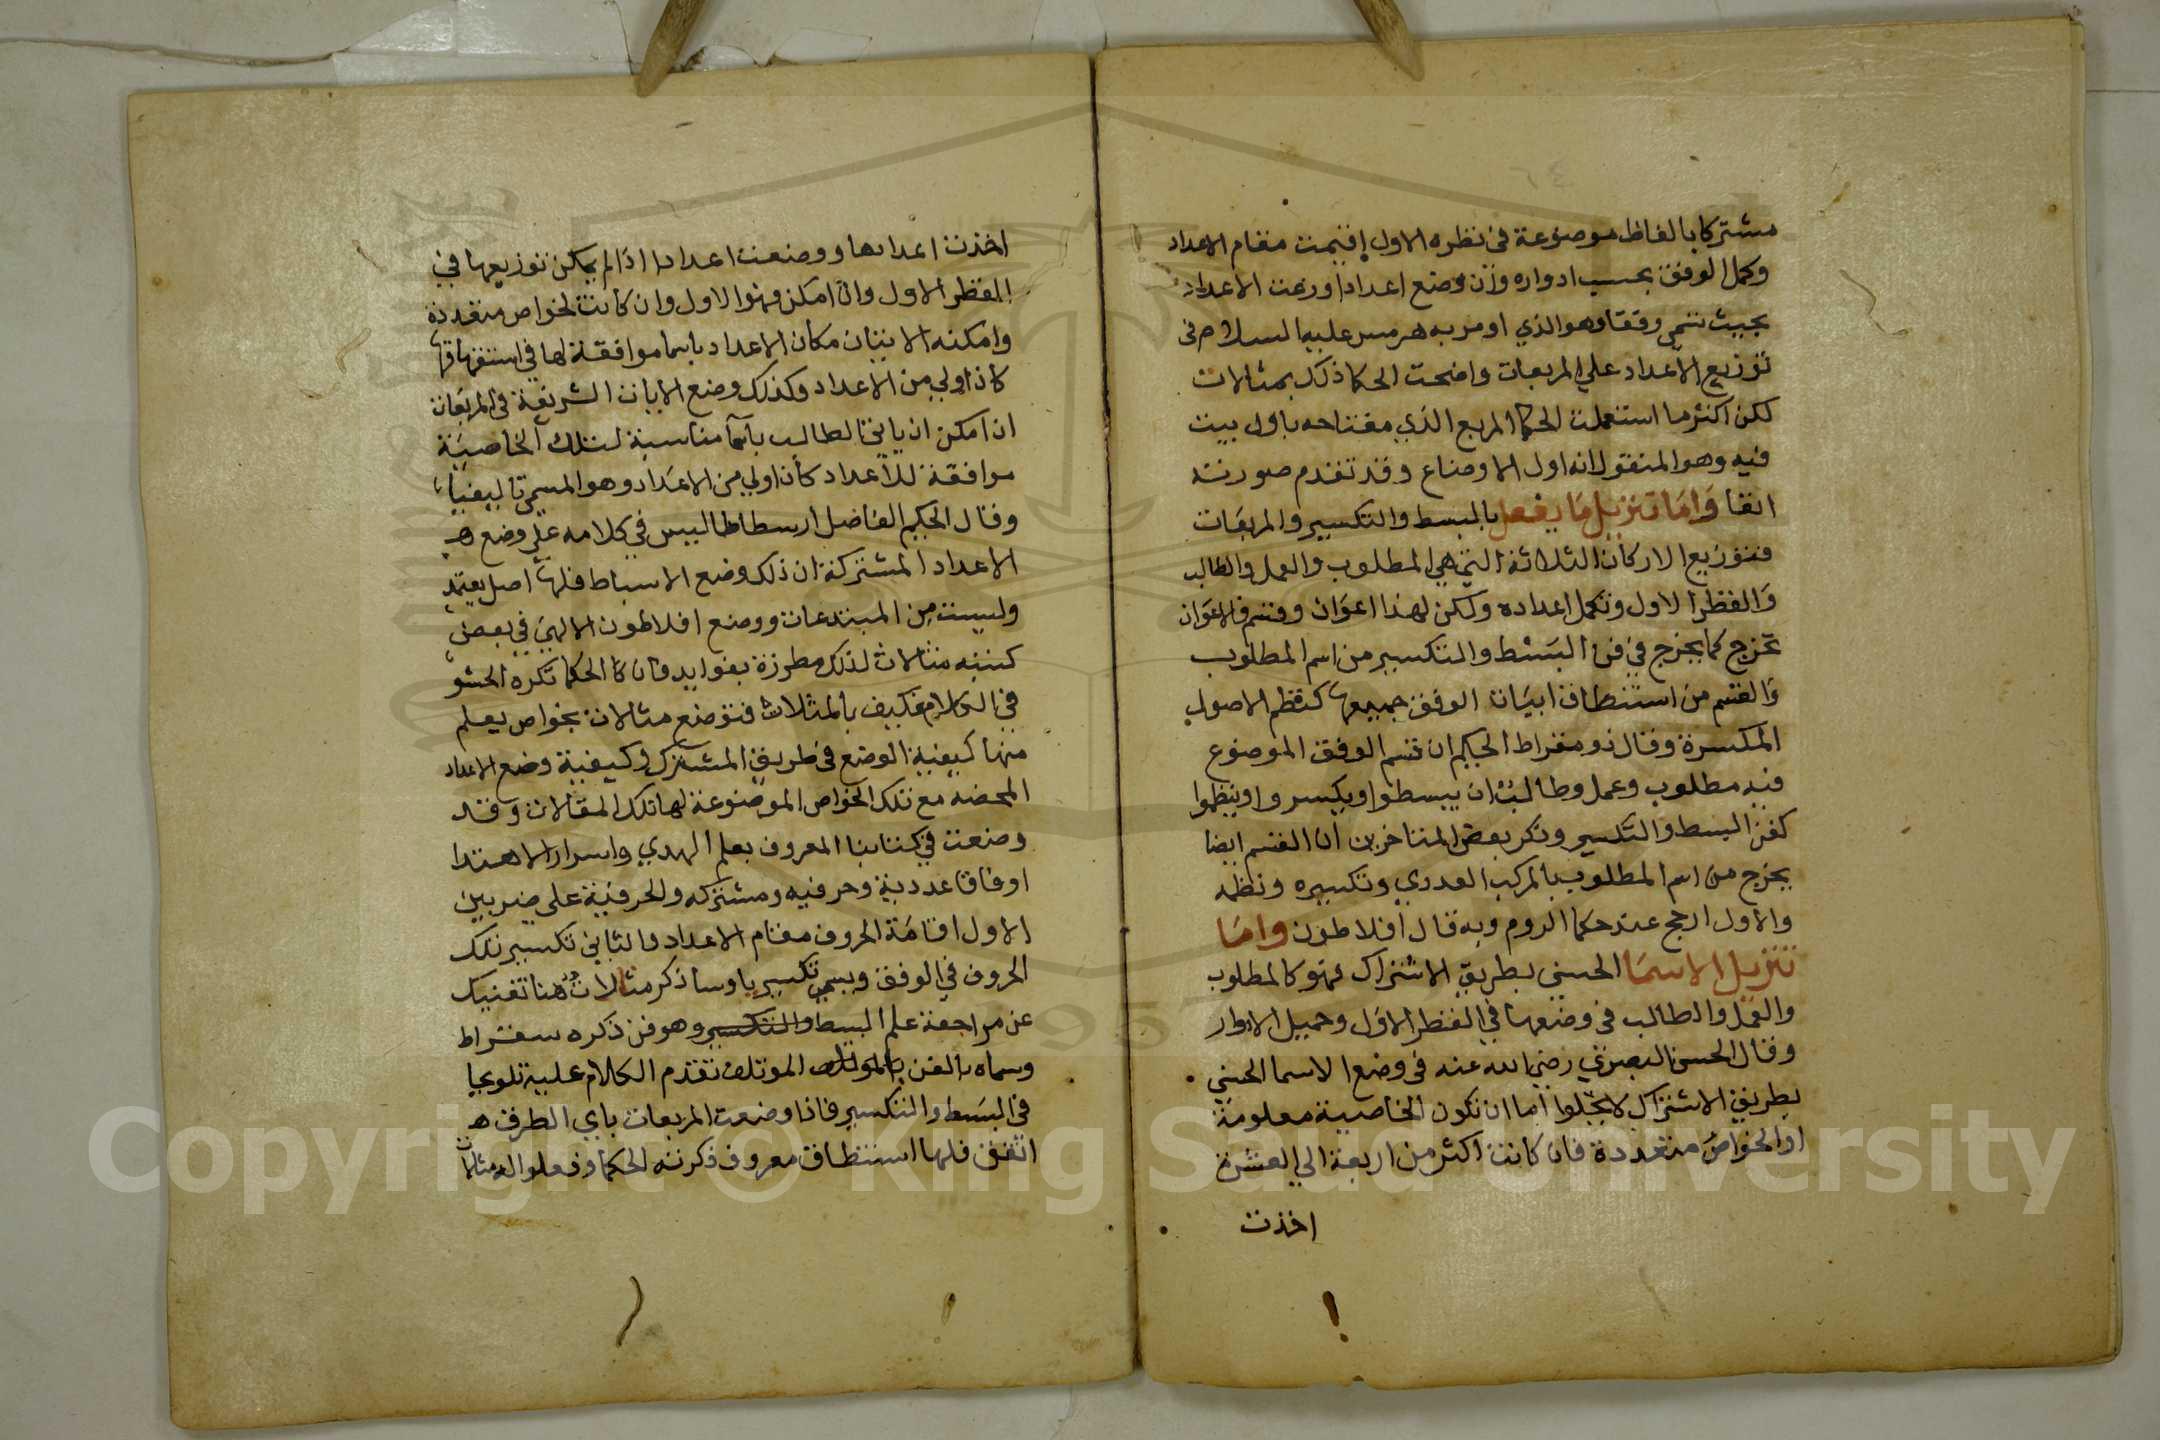 مشتركا بالفاظ موضوعة في نظره الاول اقيمت مقام الاعداد
وكمل الوفق بحسب ادواره وزن وضع اعدادا ورتبت الاعداد
بحيث تنتمي وفقا وهو الذي اومر به هرمس عليه السلام في
توزيع الاعداد علي المربعات واضحت الحكما ذلك بمثالات
لكن اكثر ما استعملت الحكما المربع الذي مفتاحه باول بيت
فيه وهو المنقول انه اول الاوضاع وقد تقدم صورته
انفا وَامَا تنزيل مَا يفعل بالبسط والتكسير والمربعَات
فتوزيع الاركان الثلاثة التي هي المطلوب والعمل والطالب
وَالقطر الاول وتكمل اعداده ولكن لهذا اعوَان وقسم فالاعوَان
تخرج كما يخرج في فن البَسْط والتكسير من اسم المطلوب
وَالقسم من استنطاق ابيَات الوفق جميعها كنظم الاصول
المكسرة وقال ذومقراط الحكيم ان قسم الوفق الموضوع
فيه مطلوب وعمل وطالب ان يبسطوا ويكسروا وينظموا
كفن البسط والتكسير وذكر بعض المتاخرين ان القسم ايضا
يخرج من اسم المطلوب بالمركب العددي وتكسيره ونظمه
والاول ارجح عند حكما الروم وبه قال افلاطون وامَا
تنزيل الاسمَا الحسنى بطريق الاشتراك فهو كالمطلوب
والعمل والطالب في وضعها في القطر الاوَل وحميل الادوار
وقال الحسن البصري رضي الله عنه في وضع الاسما الحسني
بطريق الاشتراك لا يخلوا اما ان تكون الخاصية معلومة
او الخواص متعددة فان كانت اكثر من اربعة الي العشرة
اخذت
اخذت اعدادها ووضعت اعدادا اذا لم يمكن توزيعها في
القطر الاول وان امكن فهوا الاول وان كانت لخواص متعددة
وامكنه الاتيان مكان الاعداد باسما موافقة لها في استنفراقها
كان اولي من الاعداد وكذلك وضع الايات الشريفة في المربعَات
ان امكن ان ياتي الطالب باسما مناسبة لتلك الخاصيَة
موافقة للاعداد كان اولي من الاعدَاد وهو المسمي تاليفيا
وقال الحكيم الفاضل ارسطاطاليس في كلامه علي وضع هـ
الاعداد المشتركة ان ذلك وضع الاسباط فلها اصل يعتمد
وليست من المبتدعات ووضع افلاطون الالهي في بعض
كتبه مثالات لذلك مطرزة بفوايد فان كان الحكما تكره الحشو
في الكلام فكيف بالمثلاث فتوضع مثالات بخواص يعلم
منها كيفية الوضع في طريق المشترك وكيفية وضع الاعداد
المحضه مع تلك الخواص الموضوعة لها تلك المقالات وقد
وضعت في كتابنا المعروف بعلم الهدي واسرار الاهتدا
اوفاقا عددية وحرفيه ومشتركه والحرفية على ضربين
الاول اقامَة الحروف مقام الاعداد والثاني تكسير تلك
الحروف في الوفق ويسمي تكسيريا وساذكر مثالات هنا تغنيك
عن مراجعة علم البسط والتكسير وهو فن ذكره سقراط
وسماه بالفن بالموتلف الموتلف تقدم الكلام عليه تلويحا
في البسَط والتكسير فاذا وضعت المربعات باي الطرق هـ
اتفق فلها استنطاق معروف ذكرته الحكما وفعلوا له مثالات
Copyright © King Saud University
1957